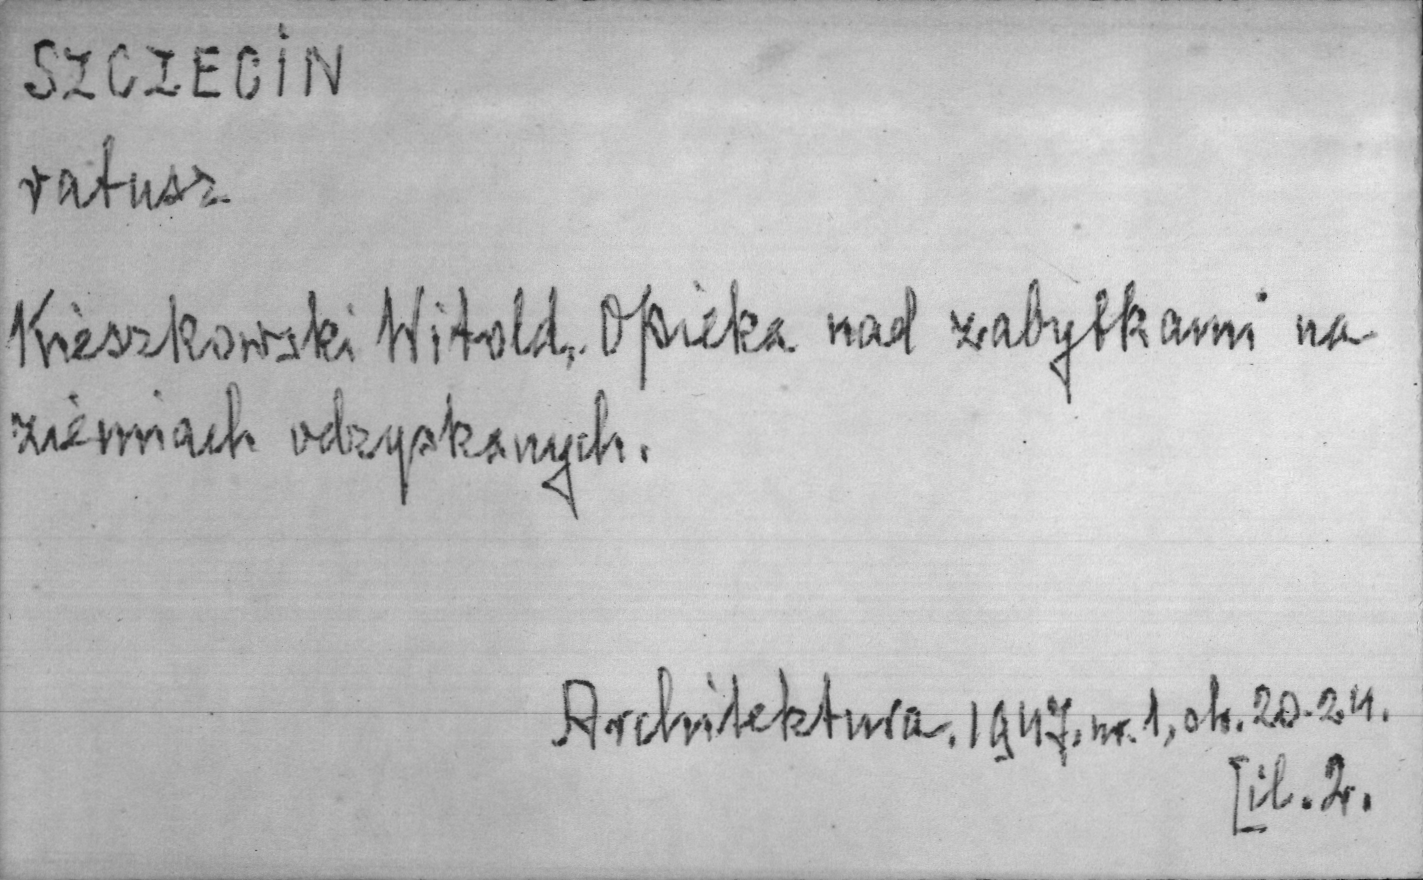 SZCZECIN
ratusz
Kieszkowski Witold, Opieka nad zabytkami na
ziemiach odzyskanych.
Architektura. 1947, nr. 1, str. 20-24.
[il. 2.